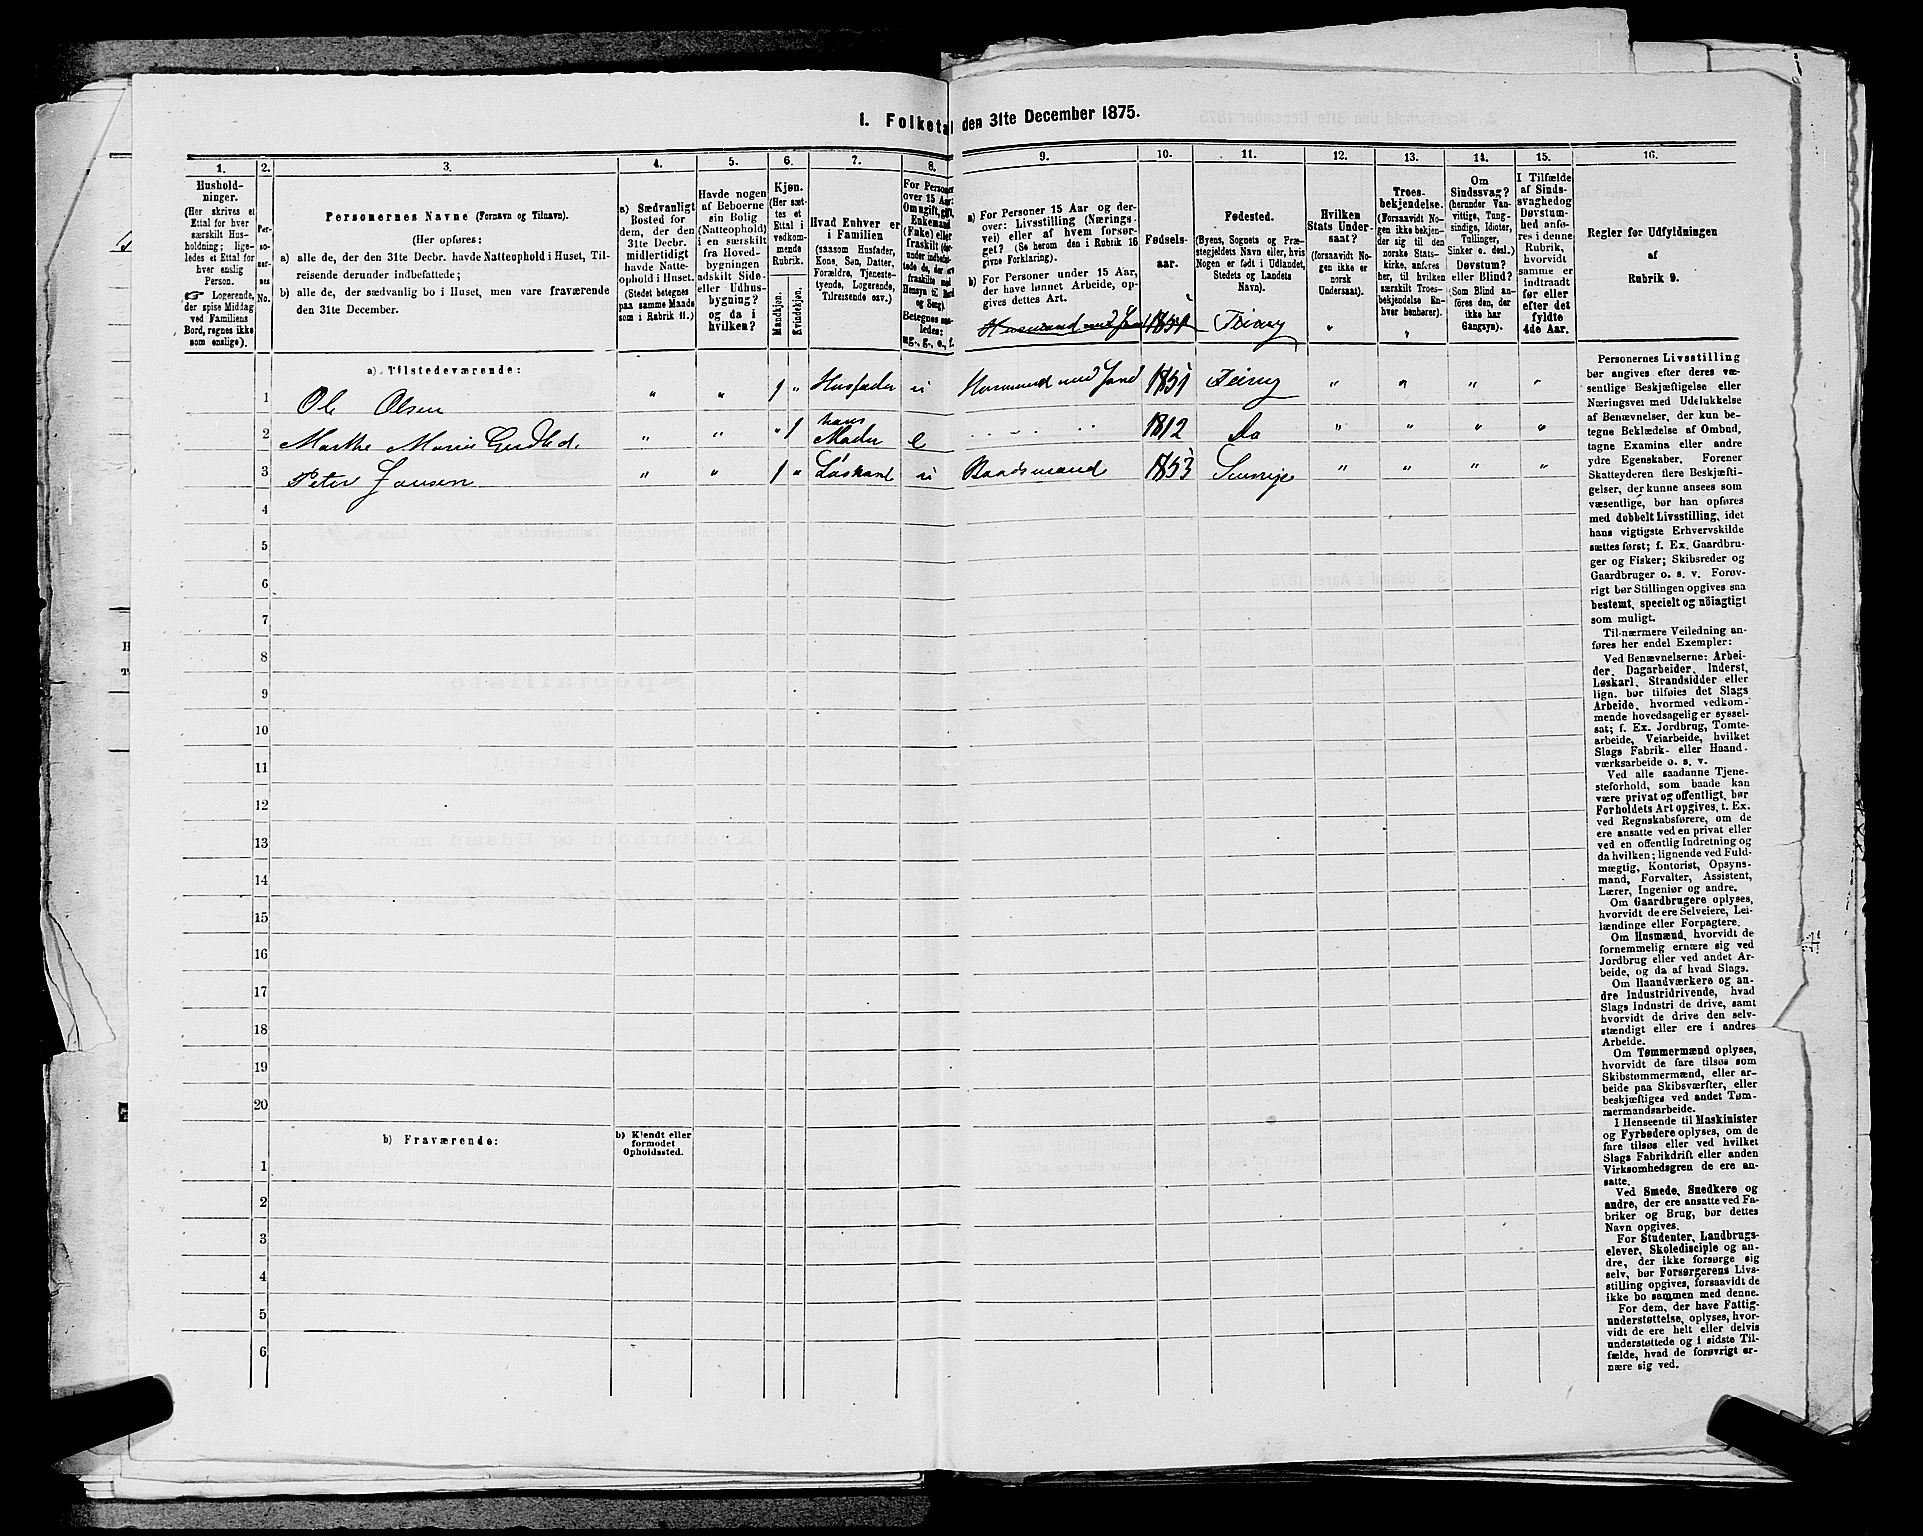 1. Folketal den 31te December 1875.
1. 2. 3. 4. 5. 6. 7. 8. 9. 10. 11. 12. 13. 14. 15. 16.
Hushold-
ninger.
(Her skrives et
Ettal for hver
særskilt Hus-
holdning; lige-
ledes et Ettal for
hver enslig
Person.
☞ Logerende,
der spise Middag
ved Familiens
Bord, regnes ikke
som enslige).
Per-
so-
ner-
nes
No.
Personernes Navne (Fornavn og Tilnavn).
(Her opføres:
a) alle de, der den 31te Decbr. havde Natteophold i Huset, Til-
reisende derunder indbefattede;
b) alle de, der sædvanlig bo i Huset, men vare fraværende
den 31te December.
a) Sædvanligt
Bosted for
dem, der den
31te Decbr.
midlertidigt
havde Natte-
ophold i Huset.
(Stedet betegnes
paa samme Maade
som i Rubrik 11.)
Havde nogen
af Beboerne
sin Bolig
(Natteophold)
i en særskilt
fra Hoved-
bygningen
adskilt Side-
eller Udhus-
bygning?
og da i
hvilken?
Kjøn.
(Her sæt-
tes et
Ettal i
vedkom-
mende
Rubrik.
Mandkjøn.
Kvindekjøn.
Hvad Enhver er
i Familien
(saasom Husfader,
Kone, Søn, Datter,
Forældre, Tjeneste-
tyende, Logerende,
Tilreisende osv.)
For Personer
over 15 Aar:
Om ugift, gift,
Enkemand
(Enke) eller
fraskilt
Betegnes saa-
ledes:
ug., g., e., f.
a) For Personer 15 Aar og der-
over: Livsstilling (Nærings-
vei) eller af hvem forsør-
get? (Se herom den i Rubrik 16
givne Forklaring).
b) For Personer under 15 Aar,
der have lønnet Arbeide, op-
gives dettes Art.
Fødsels-
aar.
Fødested.
(Byens, Sognets og Præ-
stegjeldets Navn eller, hvis
Nogen er født i Udlandet,
Stedets og Landets
Navn).
Hvilken
Stats Under-
saat?
(forsaavidt No-
gen ikke er
norsk
Undersaat).
Troes-
bekjendelse.
(Forsaavidt No-
gen ikke bekjen-
der sig til den
norske Stats-
kirke, anføres
her, til hvilken
særskilt Troes-
bekjendelse En-
hver henhører).
Om
Sindssvag?
(herunder Van-
vittige, Tung-
sindige, Idioter,
Tullinger,
Sinker o. desl.)
Døvstum?
eller Blind?
(Som Blind an-
føres den, der
ikke har
Gangsyn).
I Tilfælde
af Sinds-
svaghed og
Døvstum-
hed anfø-
res i denne
Rubrik,
hvorvidt
samme er
indtraadt
før eller
efter det
fyldte
4de Aar.
Regler for Udfyldningen
af
Rubrik 9.
Husmand med Jord 1851 Feiring " "
a) Tilstedeværende:
1 Ole Olsen " " 1 " Husfader u Husmand med Jord 1851 Feiring " " " "
2 Marthe Marie " " " 1 hans Moder e 1812 Do " " " "
3 Peter Jansen " " 1 " Løskarl u Baadsmand 1853 Sverrige " " " "
4
5
6
7
8
9
10
11
12
13
14
15
16
17
18
19
20
b) Fraværende:
b) Kjendt eller
formodet
Opholdssted.
1
2
3
4
5
6
Personernes Livsstilling
bør angives efter deres væ-
sentlige Beskjæftigelse eller
Næringsvei med Udelukkelse
af Benævnelser, der kun be-
tegne Beklædelse af Ombud,
tagne Examina eller andre
ydre Egenskaber. Forener
Skatteyderen flere Beskjæfti-
gelser, der kunne ansees som
væsentlige, bør han opføres
med dobbelt Livsstilling, idet
hans vigtigste Erhvervskilde
sættes først; f. Ex. Gaardbru-
ger og Fisker; Skibsreder og
Gaardbruger o. s. v. Forøv-
rigt bør Stillingen opgives saa
bestemt, specielt og nöiagtigt
som muligt.
Til nærmere Veiledning an-
føres her endel Exempler:
Ved Benævnelserne: Arbei-
der, Dagarbeider, Inderst,
Løskarl, Strandsidder eller
lign. bør tilføies det Slags
Arbeide, hvormed vedkom-
mende hovedsagelig er syssel-
sat; f. Ex. Jordbrug, Tomte-
arbeide, Veiarbeide, hvilket
Slags Fabrik- eller Haand-
værksarbeide o. s. v.
Ved alle saadanne Tjene-
steforhold, som baade kan
være privat og offentligt, bør
Forholdets Art opgives, t. Ex.
ved Regnskabsførere, om de
ere ansatte ved en privat eller
ved en offentlig Indretning og
da hvilken; lignende ved Fuld-
mægtig, Kontorist, Opsyns-
mand, Forvalter, Assistent,
Lærer, Ingeniør og andre.
Om Gaardbrugere oplyses,
hvorvidt de ere Selveiere, Lei-
lændinge eller Forpagtere.
Om Husmænd, hvorvidt de
fornemmelig ernære sig ved
Jordbrug eller ved andet Ar-
beide, og da af hvad Slags.
Om Haandværkere og an-
dre Industridrivende, hvad
Slags Industri de drive, samt
hvorvidt de drive den selv-
stændigt eller ere i andres
Arbeide.
Om Tømmermænd oplyses,
hvorvidt de fare tilsøs som
Skibstømmermænd, eller ar-
beide paa Skibsværfter, eller
beskjæftiges ved andet Tøm-
mermandsarbeide.
I Henseende til Maskinister
og Fyrbødere oplyses, om de
fare tilsøs eller ved hvilket
Slags Fabrikdrift eller anden
Virksomhedsgren de ere an-
satte.
Ved Smede, Snedkere og
andre, der ere ansatte ved Fa-
briker og Brug, bør dettes
Navn opgives.
For Studenter, Landbrugs-
elever, Skoledisciple og an-
dre, der ikke forsørge sig
selv, bør Forsørgerens Livs-
stilling opgives, forsaavidt de
ikke bo sammen med denne.
For dem, der have Fattig-
understøttelse, oplyses, hvor-
vidt de ere helt eller delvis
understøttede og i sidste Til-
fælde, hvad de forøvrigt er-
nære sig ved.